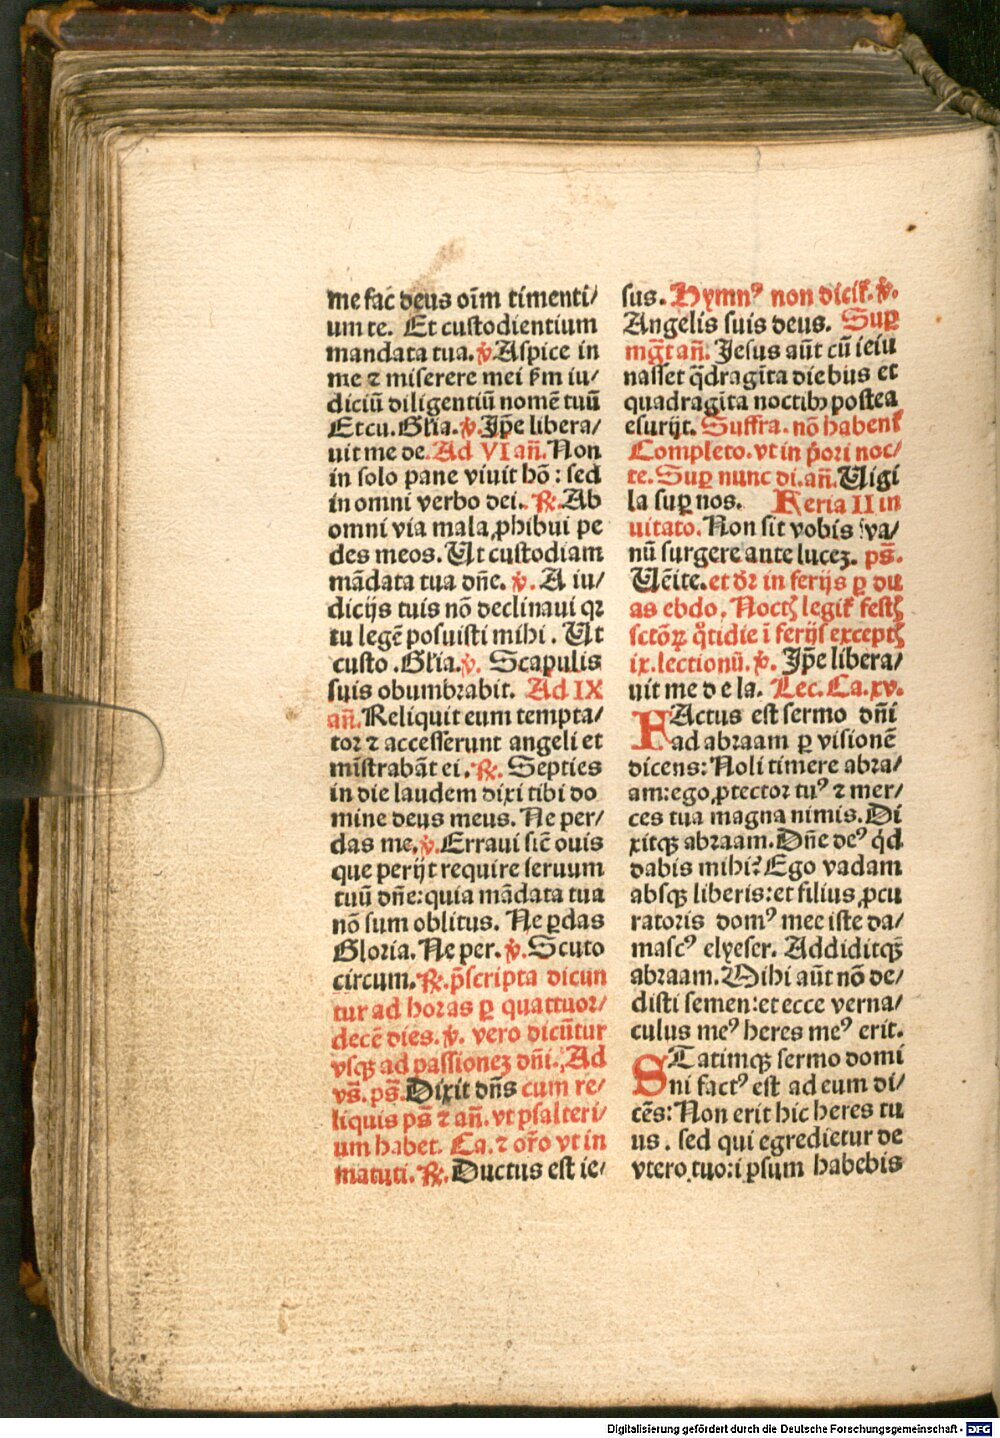 me fac deus oīm timenti/
um te. Et custodientium
mandata tua. ℣. Aspice in
me ⁊ miserere mei ẜm iu/
diciū diligentiū nomē tuū
Et cu. Gl̄ia. ℣. Ip̄e libera/
uit me de. Ad VI an̄. Non
in solo pane viuit hō: sed
in omni verbo dei. ℟. Ab
omni via mala ꝓhibui pe
des meos. Ut custodiam
mādata tua dn̄e. ℣. A iu/
dicijs tuis nō declinaui qꝛ
tu legē posuisti mihi. Ut
custo. Gl̄ia. ℣. Scapulis
suis obumbrabit. Ad IX
an̄. Reliquit eum tempta/
tor ⁊ accesserunt angeli et
mīstrabāt ei. ℟. Septies
in die laudem dixi tibi do
mine deus meus. Ne per/
das me. ℣. Erraui sic̄ ouis
que perijt require seruum
tuū dn̄e: quia mādata tua
nō sum oblitus. Ne ꝑdas
Gloria. Ne per. ℣. Scuto
circum. ℟. p̄scripta dicun
tur ad horas ꝑ quattuor/
decē dies. ℣. vero dicūtur
vsqꝫ ad passioneꝫ dn̄i. Ad
vs̄. ps̄. Dixit dn̄s cum re/
liquis ps̄ ⁊ an̄. vt psalteri/
um habet. Ca. ⁊ or̄o vt in
matuti. ℟. Ductus est ie/
sus. Hymnꝰ non dicit̄. ℣.
Angelis suis deus. Suꝑ
mḡt an̄. Jesus aūt cū ieiu
nasset q̄dragīta diebus et
quadragīta noctibꝫ postea
esurijt. Suffra. nō habent̄
Completo. vt in p̄ori noc/
te. Suꝑ nunc di. an̄. Uigi
la suꝑ nos. Feria II in
uitato. Non sit vobis va/
nū surgere ante luceꝫ. ps̄.
Uēite. et dr̄ in ferijs ꝑ du
as ebdo. Noctꝭ legit̄ festꝭ
sctōꝝ q̄tidie ī ferijs exceptꝭ
ix. lectionū. ℣. Ip̄e libera/
uit me de la. Lec. Ca. xv.
FActus est sermo dn̄i
ad abraam ꝑ visionē
dicens: Noli timere abra/
am: ego ꝓtector tuꝰ ⁊ mer/
ces tua magna nimis. Di
xitqꝫ abraam. Dn̄e deꝰ qd̄
dabis mihi? Ego vadam
absqꝫ liberis: et filius ꝓcu
ratoris domꝰ mee iste da/
mascꝰ elyeser. Addiditqꝫ
abraam. Mihi aūt nō de/
disti semen: et ecce verna/
culus meꝰ heres meꝰ erit.
STatimqꝫ sermo domi
ni factꝰ est ad eum di/
cēs: Non erit hic heres tu
us. sed qui egredietur de
vtero tuo: ipsum habebis
Digitalisierung gefördert durch die Deutsche Forschungsgemeinschaft - DFG